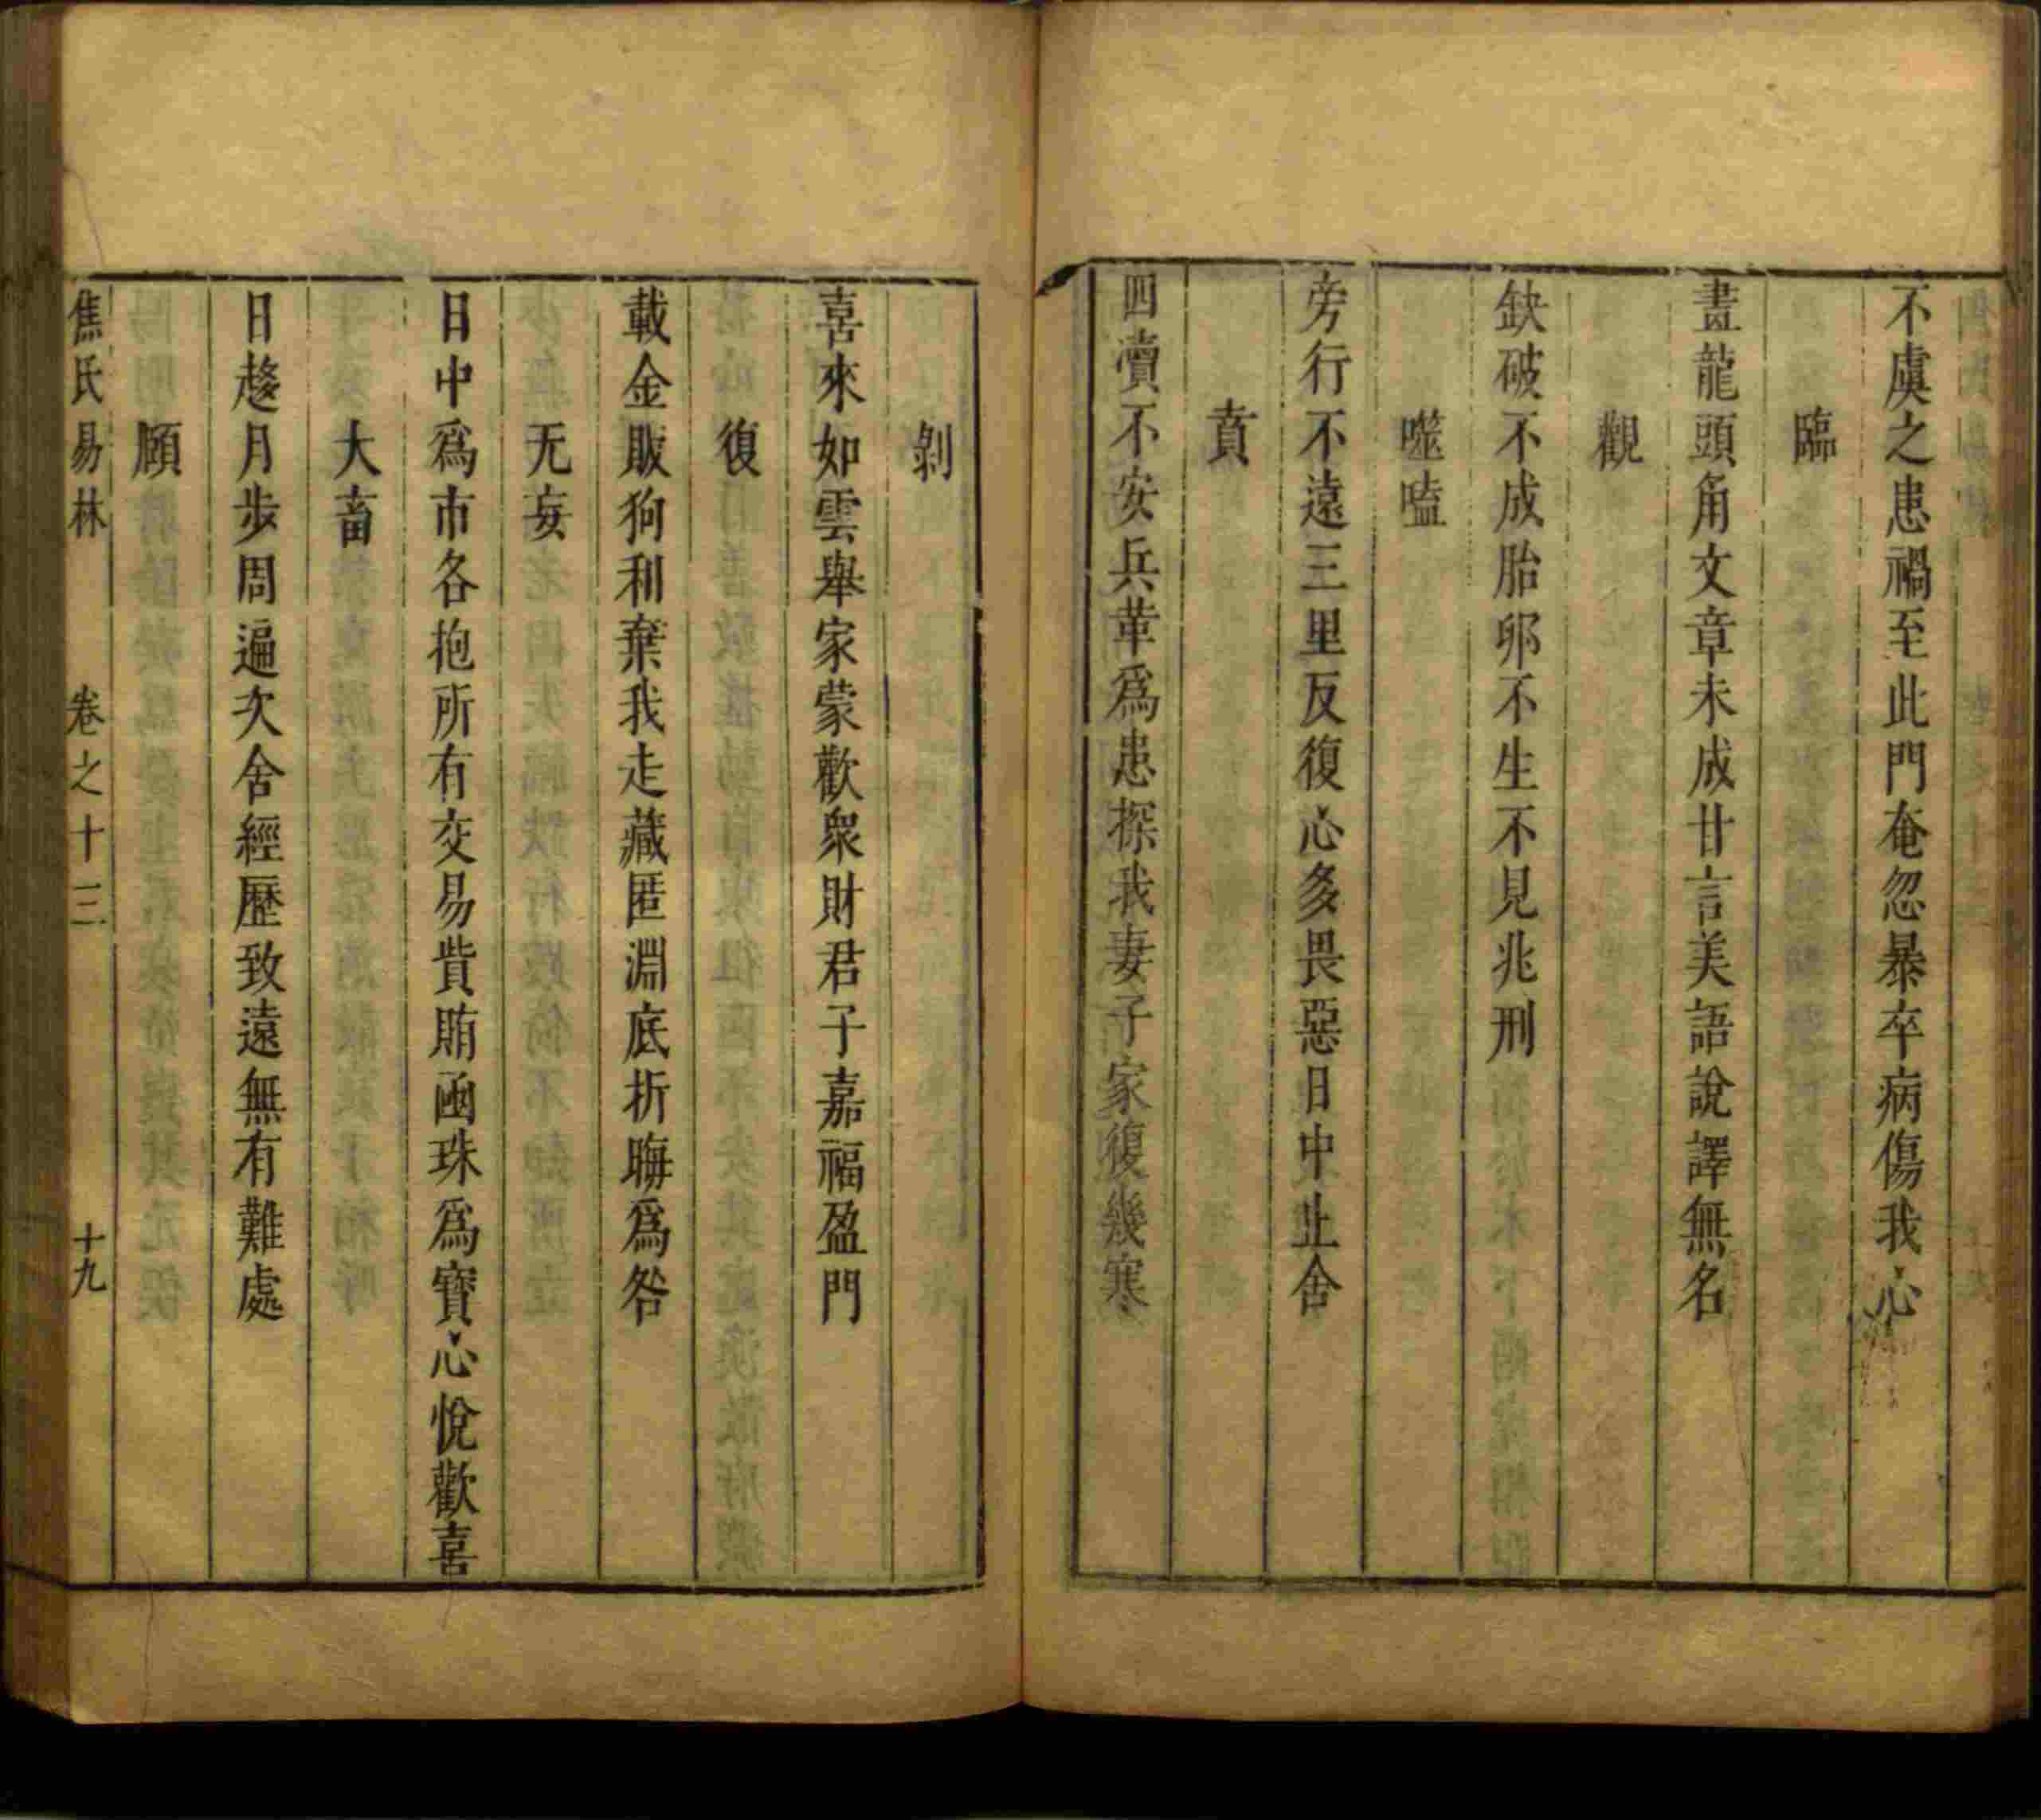 不虞之患禍至此門奄忽暴卒病傷我心
臨
畫龍頭角文章未成甘言美語說譯無名
觀
缺破不成胎卵不生不見兆刑
噬嗑
旁行不遠三里反復心多畏惡日中止舍
賁
四瀆不安兵革爲患探我妻子家復幾寒
剝
喜來如雲舉家蒙歡衆財君子嘉福盈門
復
載金販狗利棄我走藏匿淵底折晦爲咎
无妄
日中爲市各抱所有交易貲賄函珠爲寶心悅歡喜
大畜
日趍月步周遍次舍經歷致遠無有難處
頤
焦氏易林 卷之十三 十九